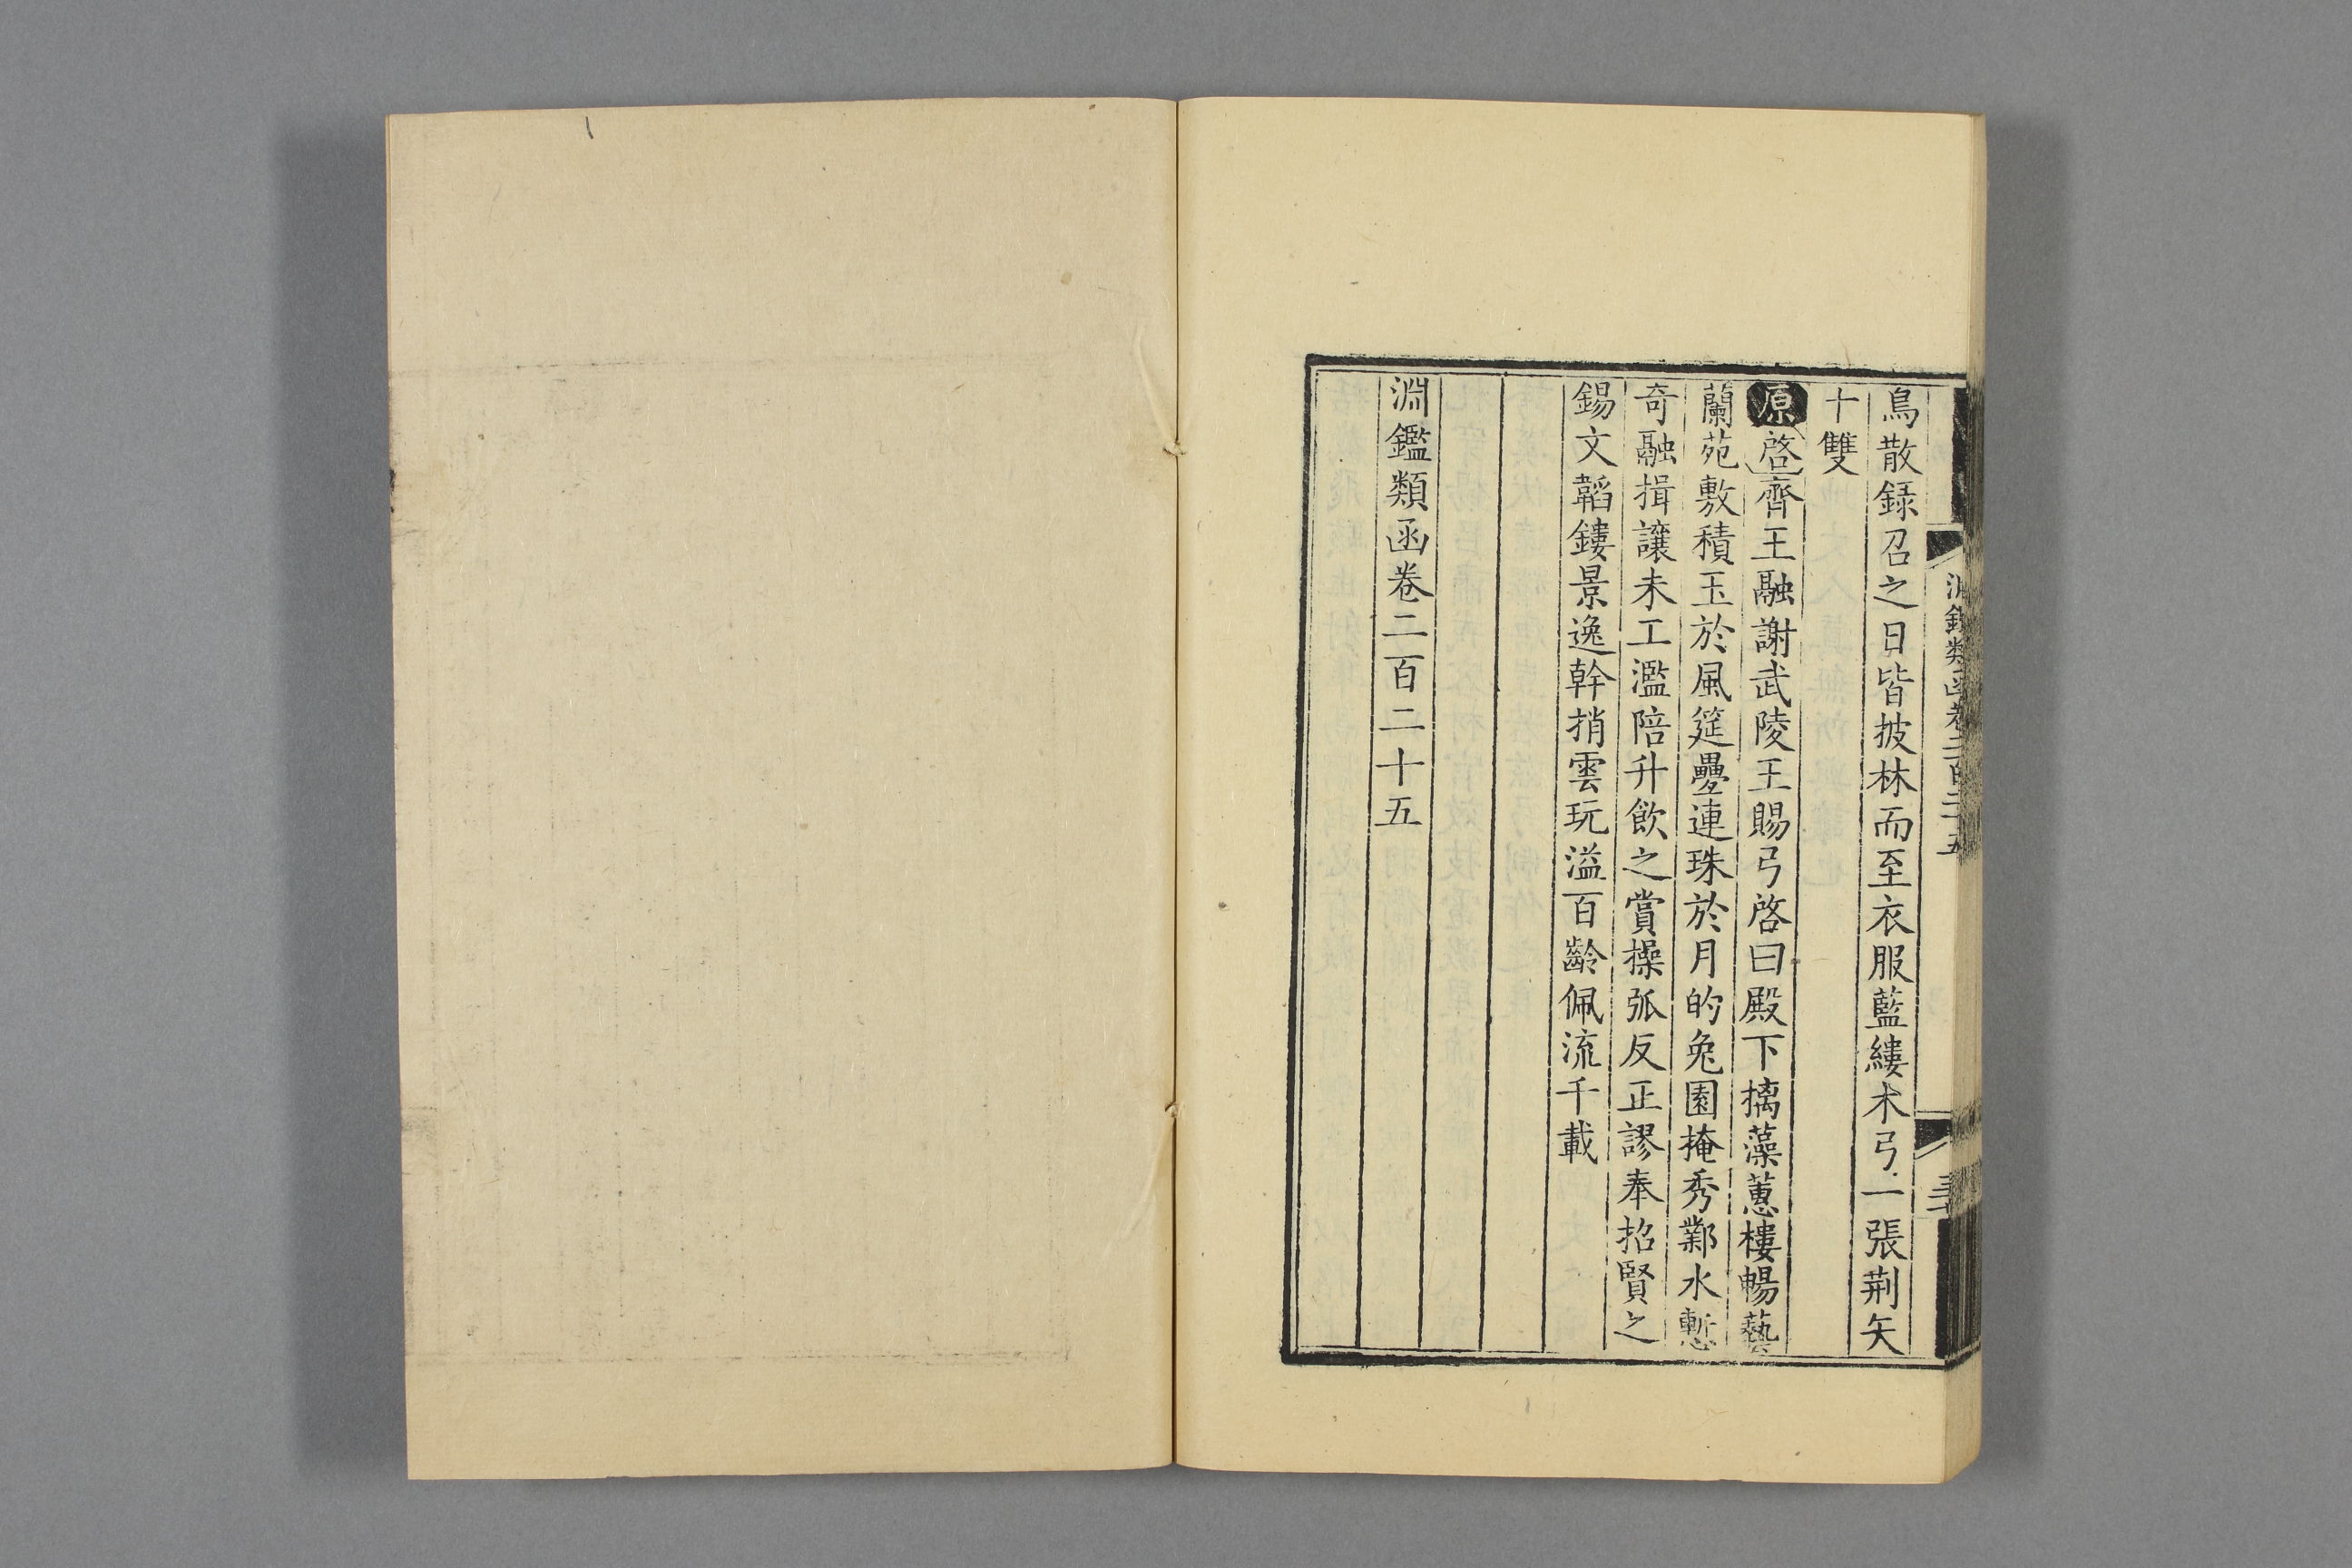 淵鑑類函卷二百二十五
鳥散録召之日皆披林而至衣服藍縷木弓一張荆矢
十雙
原啓齊王融謝武陵王賜弓啓曰殿下摛藻蕙樓暢藝
蘭苑敷積玉於風筵疊連珠於月的兔園掩秀鄴水慙
奇融揖讓未工濫陪升飲之賞操弧反正謬奉招賢之
錫文韜鏤景逸幹捎雲玩溢百齡佩流千載
淵鑑類函卷二百二十五